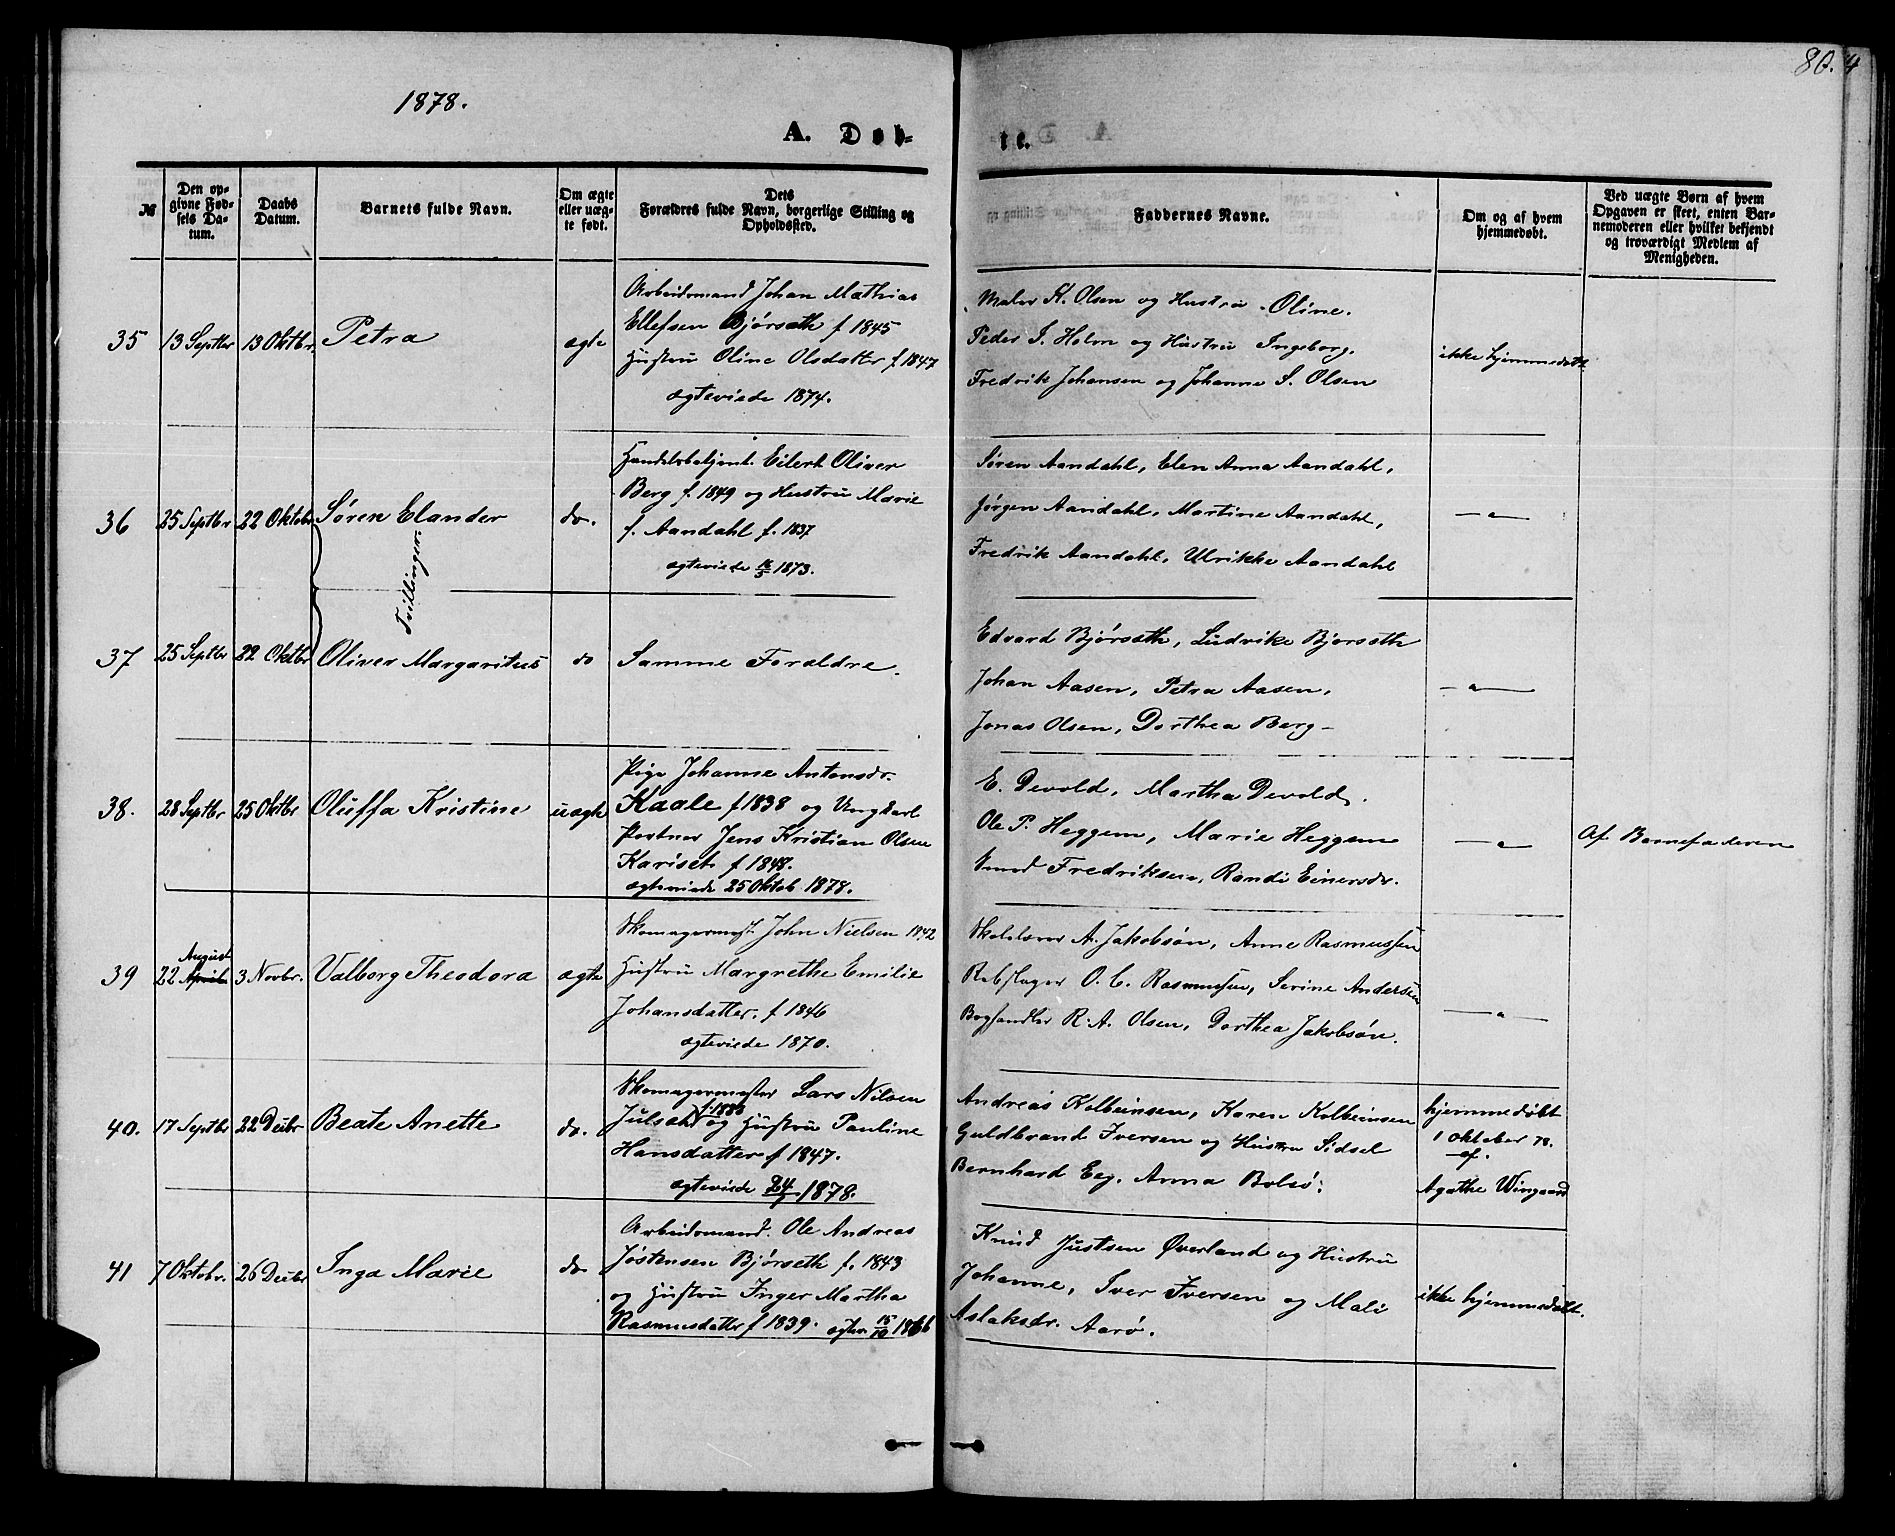 1878.
80.
A. Døb-
te.
№
Den op-
givne Fød-
sels Da-
tum.
Daabs
Datum.
Barnets fulde Navn.
Om ægte
eller uæg-
te født.
Dets
Forældres fulde Navn, borgerlige Stilling og
Opholdssted.
Faddernes Navne.
Om og af hvem
hjemmedøbt.
Ved uægte Børn af hvem
Opgaven er skeet, enten Bar-
nemoderen eller hvilket bekjendt
og troværdigt Medlem af
Menigheden.
35 13 Septbr 13 Oktbr. Petra ægte
Arbeidsmand Johan Mathias
Ellefsen Bjørseth f 1845
Hustru Oline Olsdatter f. 1847
ægteviede 1874.
Maler K. Olsen og Hustru Oline.
Peder I. Holm og Hustru Ingeborg.
Fredrik Johansen og Johanne S. Olsen
ikke hjemmedøbt
36 25 Septbr 22 Oktobr Søren Elander do.
Tvillinger.
Handelsbetjent. Eilert Oliver
Berg f. 1849 og Hustru Marie
f. Aandahl f. 1837
ægteviede 16/5 1873.
Søren Aandahl, Elen Anna Aandahl,
Jørgen Aandahl, Martine Aandahl,
Fredrik Aandahl, Ulrikke Aandahl
— " —
37 25 Septbr 22 Oktbr Oliver Margaritus do Samme Forældre.
Edvard Bjørseth, Ludvike Bjørseth
Johan Aasen, Petra Aasen,
Jonas Olsen, Dorthea Berg —
— " —
38. 28 Septbr 25 Oktbr Oluffa Kristine uægte
Pige Johanne Antonsdr.
Kaale f 1838 og Ungkarl
Portner Jens Kristian Olsen
Kariset f 1848.
ægteviede 25 Oktob 1878.
E. Devold, Martha Devold,
Ole P. Heggem, Marie Heggem
Fredriksen, Randi Einersdr.
— " —
Af Barnefaderen
39 22 August April 3 Novbr. Valborg Theodora ægte
Skomagermest. John Nielsen 1842
Hustru Margrethe Emilie
Johansdatter. f 1846
ægteviede 1870.
A. Jakobsøn, Anne Rasmussen
Rebslager O. C. Rasmussen, Serine Andersen
Boghandler R. A. Olsen, Dorthea Jakobsøn.
— " —
40. 17 Septbr 22 Decbr Beate Anette do.
Skomagermester Lars Nilsen
Julseth og Hustru Pauline
Hansdatter f 1847.
ægteviede 1878.
Andreas Kolbeinsen, Karen Kolbeinsen
Guldbrand Iversen og Hustru Sidsel
Bernhard Eeg. Anna Bolsø.
hjemmedøbt
1 Oktober 78.
af.
Agathe Wingaard
41 7 Oktobr. 26 Decbr Inga Marie do
Arbeidsmand. Ole Andreas
Jøstensen Bjørseth f. 1843
og Hustru Inger Martha
Rasmusdatter f 1839. ægtev 15/10 1866
Knud Justsen Øverland og Hustru
Johanne, Iver Iversen og Mali
Aslaksdr. Aarø.
ikke hjemmedøbt.